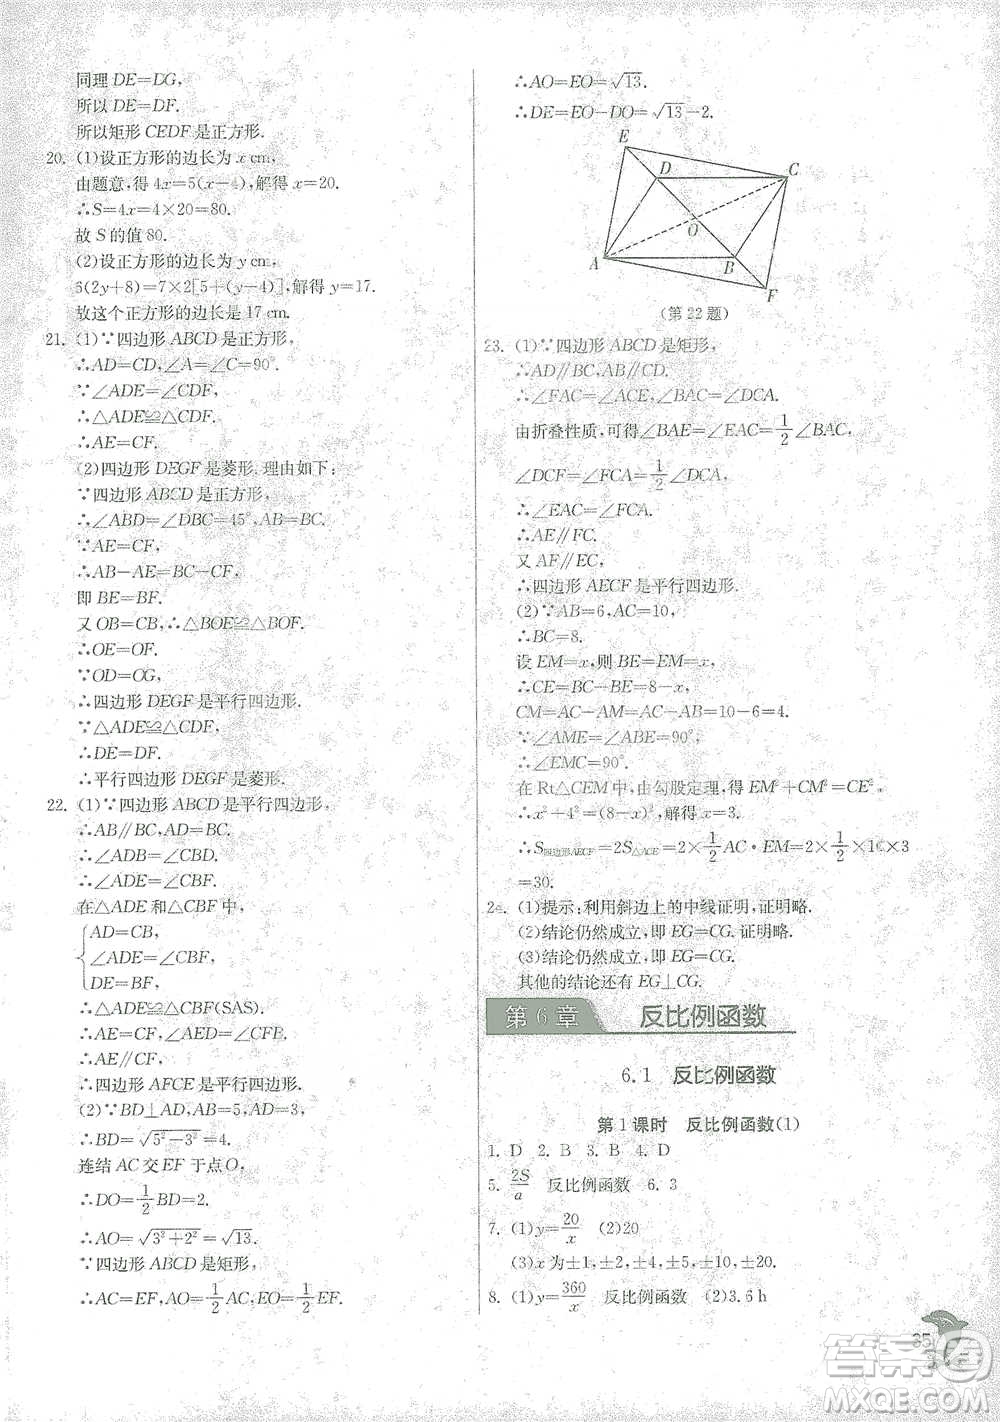 同理 DE=DG,
所以 DE=DF.
所以矩形 CEDF 是正方形.
20. (1)设正方形的边长为 x cm,
由题意,得 4x=5(x-4),解得 x=20.
∴S=4x=4×20=80.
故 S 的值 80.
(2)设正方形的边长为 y cm,
6(2y+8)=7×2[5+(y-4)],解得 y=17.
故这个正方形的边长是 17 cm.
21. (1)∵四边形 ABCD 是正方形,
∴AD=CD,∠A=∠C=90°.
∵∠ADE=∠CDF,
∴△ADE≌△CDF.
∴AE=CF.
(2)四边形 DEGF 是菱形.理由如下:
∵四边形 ABCD 是正方形,
∴∠ABD=∠DBC=45°,AB=BC.
∵AE=CF,
∴AB-AE=BC-CF,
即 BE=BF.
又 OB=CB,∴△BOE≌△BOF.
∴OE=OF.
∵OD=OG,
∴四边形 DEGF 是平行四边形.
∵△ADE≌△CDF,
∴DE=DF.
∴平行四边形 DEGF 是菱形.
22. (1)∵四边形 ABCD 是平行四边形,
∴AB∥BC,AD=BC.
∴∠ADB=∠CBD.
∴∠ADE=∠CBF.
在△ADE 和△CBF 中,
AD=CB,
∠ADE=∠CBF,
DE=BF.
∴△ADE≌△CBF(SAS).
∴AE=CF,
∴AF=CE,
∴四边形 AFCE 是平行四边形.
(2)∵BD⊥AD,AB=5,AD=3,
∴BD=√(5²-3²)=4.
连结 AC 交 EF 于点 O,
∴DO=1/2 BD=2.
∴AO=√(3²+2²)=√13.
∵四边形 ABCD 是矩形,
∴AC=EF,AO=1/2 AC,EO=1/2 EF.
∴AO=EO=√13.
∴DE=EO-DO=√13-2.
E
D
C
O
A
B
F
(第 22 题)
23. (1)∵四边形 ABCD 是矩形,
∴AD∥BC,AB∥CD.
∴∠FAC=∠ACE,∠BAC=∠DCA.
由折叠性质,可得∠BAE=∠EAC=1/2∠BAC,
∠DCF=∠FCA=1/2∠DCA.
∴∠EAC=∠FCA.
∴AE∥FC.
又 AF∥EC,
∴四边形 AECF 是平行四边形.
(2)∵AB=6,AC=10,
∴BC=8.
设 EM=x,则 BE=EM=x.
∴CE=BC-BE=8-x,
CM=AC-AM=AC-AB=10-6=4.
∵∠AME=∠ABE=90°,
∴∠EMC=90°.
在 Rt△CEM 中,由勾股定理,得 EM²+CM²=CE²
∴x²+4²=(8-x)²,解得 x=3.
∴S四边形AECF=2S△ACE=2×1/2 AC·EM=2×1/2×10×3
=30.
(1)提示:利用斜边上的中线证明,证明略.
(2)结论仍然成立,即 EG=CG.证明略.
(3)结论仍然成立,即 EG=CG.
其他的结论还有 EG⊥CG.
第 6 章 反比例函数
6.1 反比例函数
第 1 课时 反比例函数(1)
1. D 2. B 3. B 4. D
5. 2S/a 反比例函数 6. 3
7. (1)y=20/x (2)20
(3)x 为±1,±2,±4,±5,±10,±20
8. (1)y=360/x 反比例函数 (2)3.6 h
35
答案圈
MXQE.COM